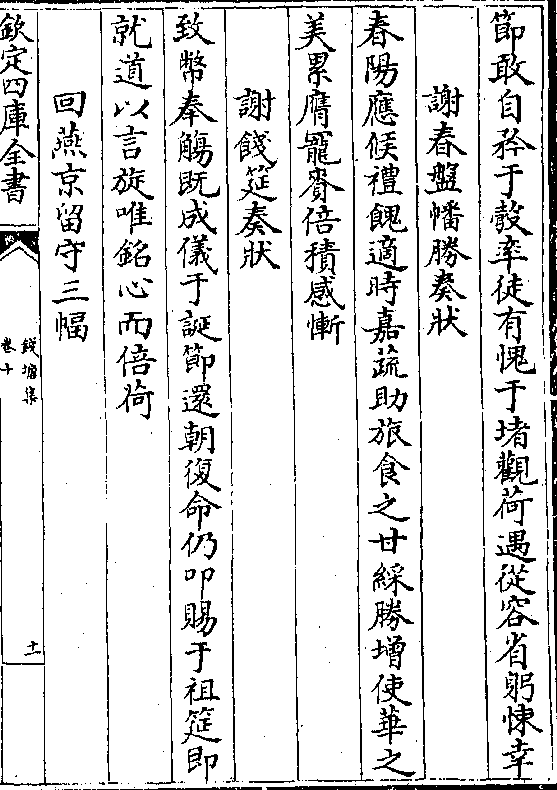 節敢自矜于彀率徒有愧于堵觀荷遇從容省躬悚幸
謝春盤幡勝奏狀
春陽應候禮餽適時嘉蔬助旅食之甘綵勝增使華之
美累膺寵賚倍積感慚
謝餞筵奏狀
致幣奉觴既成儀于誕節還朝復命仍叩賜于祖筵即
就道以言旋唯銘心而倍荷
回燕京留守三幅
欽定四庫全書
錢塘集
卷十
十一